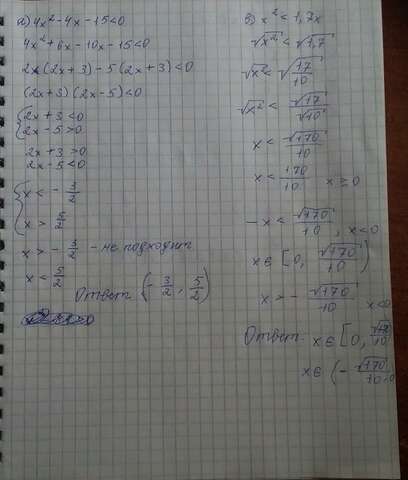 а) 4x² - 4x - 15 < 0
4x² + 6x - 10x - 15 < 0
2x(2x + 3) - 5(2x + 3) < 0
(2x + 3)(2x - 5) < 0
{2x + 3 < 0
2x - 5 > 0
2x + 3 > 0
2x - 5 < 0
{x < - 3/2
x > 5/2
x > - 3/2 - не подходит
x < 5/2
Ответ (- 3/2, 5/2)
x² < 1,7x
√x² < √1,7
√x² < √17/10
√x² < √17/√10
x < √170/10
x < 170/10 x ≥ 0
-x < √170/10, x < 0
x ∈ [0, √170/10)
x > - √170/10 x < 0
Ответ: x ∈ [0, √170/10
x ∈ (- √170/10, 0